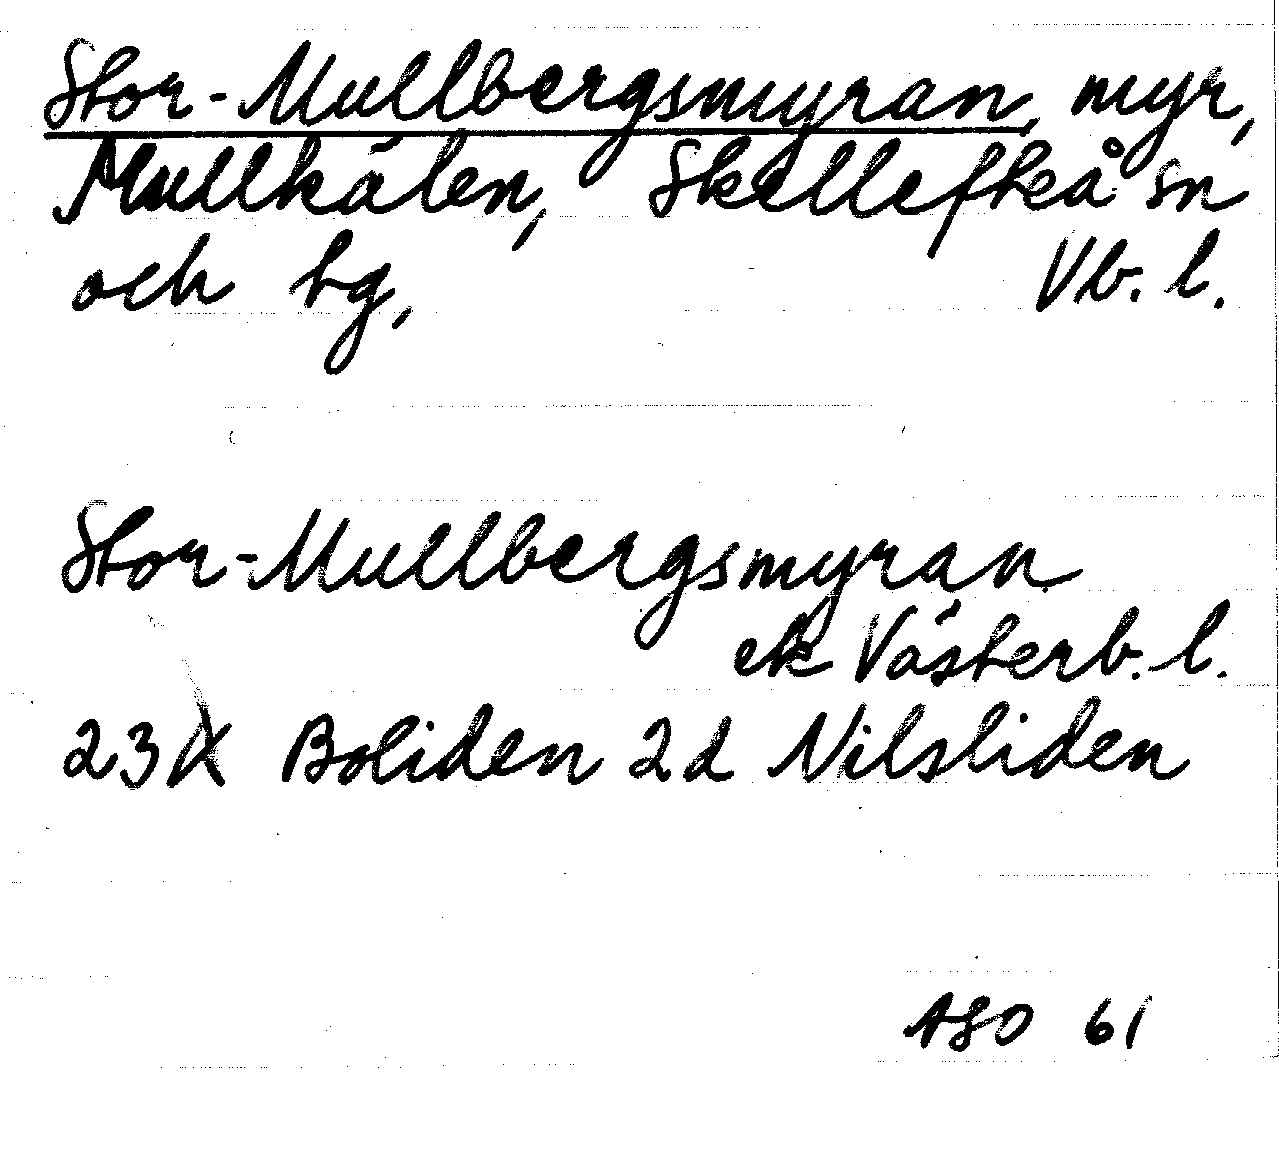 Stor-Mullbergsmyran, myr,
Mullkälen, Skellefteå sn
och tg, Vb. l.
Stor-Mullbergsmyran
ek Västerb. l.
23K Boliden 2d Nilsliden
ASO 61